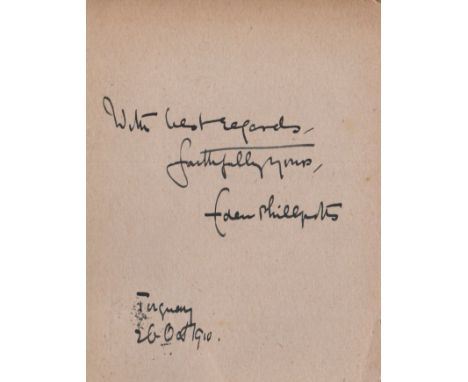 With best regards,
faithfully yours,
Eden Phillpotts
Torquay
26 Oct 1910.